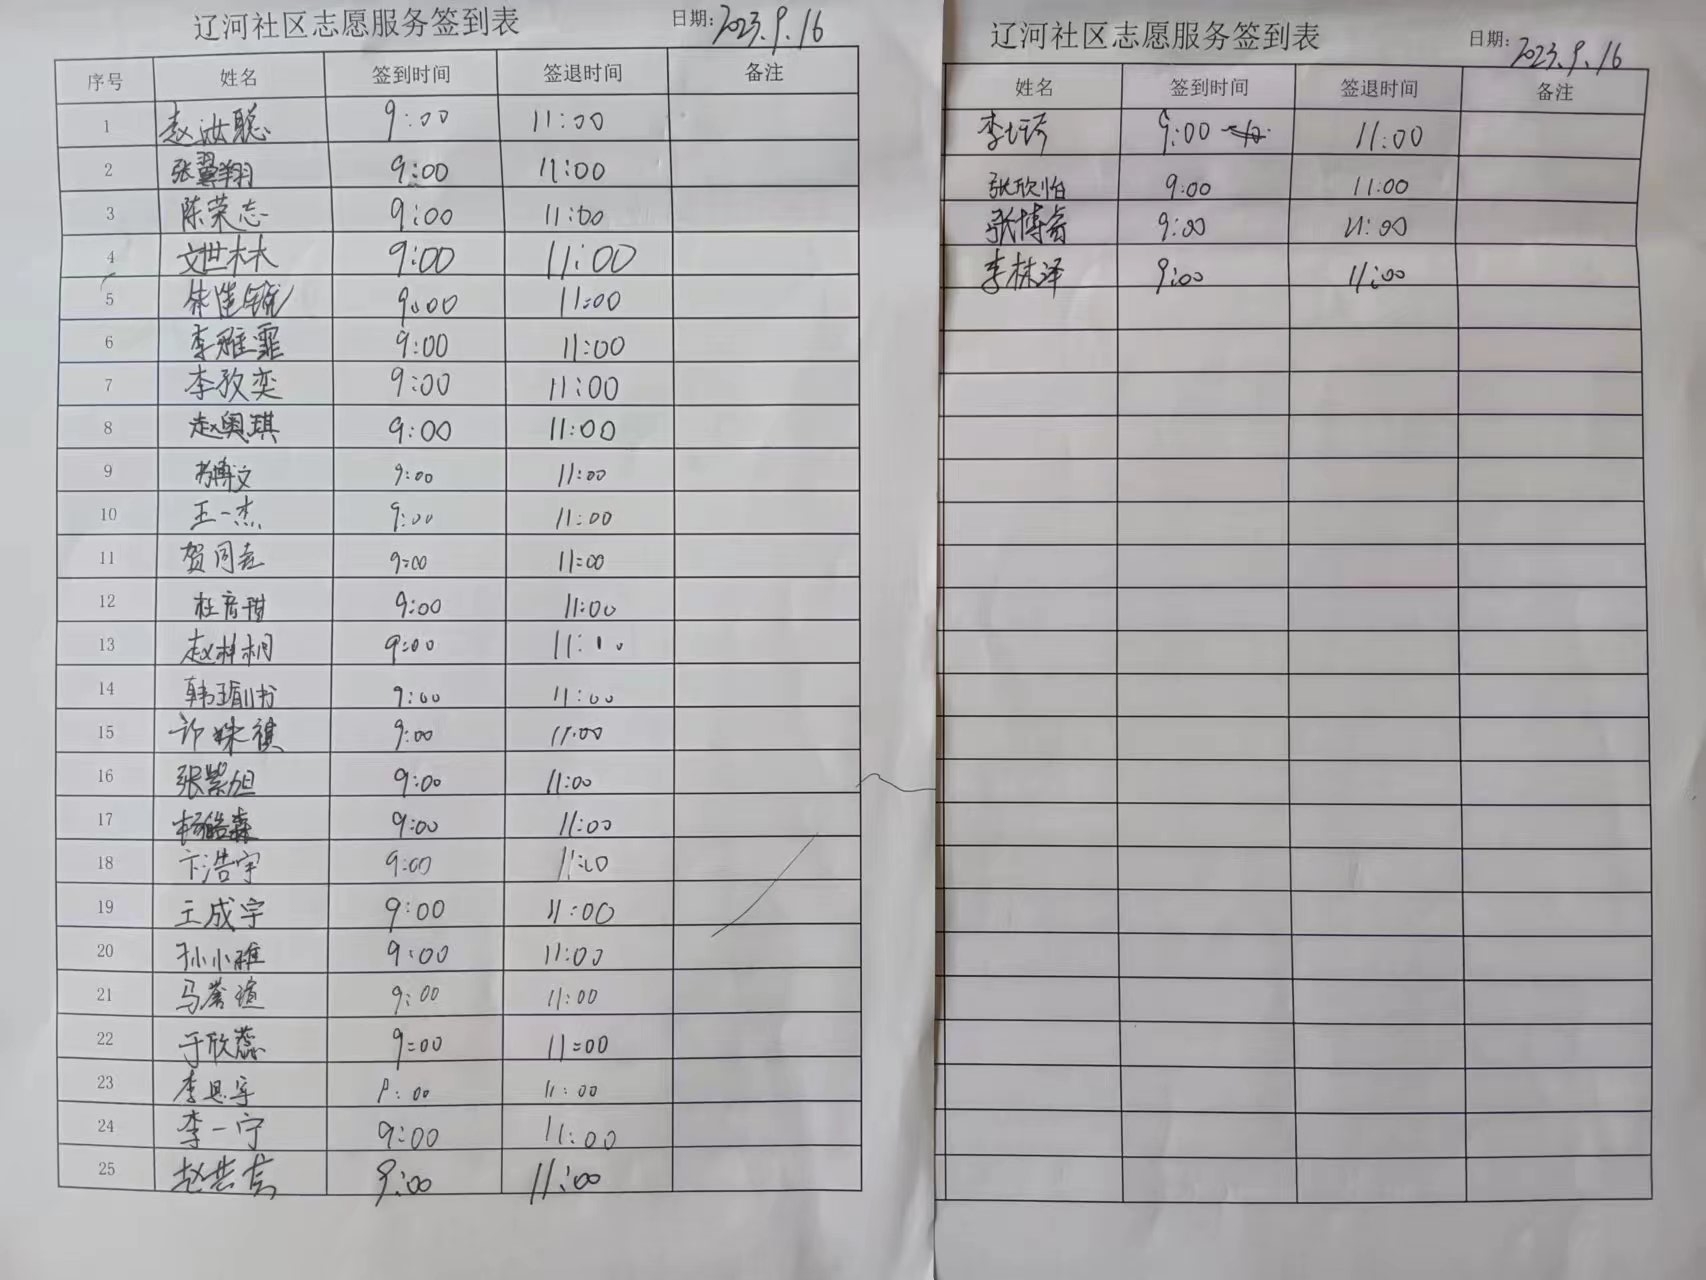 辽河社区志愿服务签到表 日期: 2023.9.16
序号 姓名 签到时间 签退时间 备注
1 赵汝聪 9:00 11:00
2 张翼翔 9:00 11:00
3 陈荣志 9:00 11:00
4 9:00 11:00
5 9:00 11:00
6 李雅霏 9:00 11:00
7 李孜奕 9:00 11:00
8 赵奥琪 9:00 11:00
9 博文 9:00 11:00
10 王一杰 9:00 11:00
11 贺同 9:00 11:00
12 杜 9:00 11:00
13 赵梓桐 9:00
14 韩 书 9:00 11:00
15 许姝祺 9:00 11:00
16 张紫旭 9:00 11:00
17 杨皓森 9:00 11:00
18 卞浩宇 9:00 11:00
19 王成宇 9:00 11:00
20 孙小雅 9:00 11:00
21 马 瑄 9:00 11:00
22 于欣蕊 9:00 11:00
23 李思宇 9:00 11:00
24 李一宁 9:00 11:00
25 赵 9:00 11:00
辽河社区志愿服务签到表 日期: 2023.9.16
姓名 签到时间 签退时间 备注
李 9:00 11:00
张欣怡 9:00 11:00
张博睿 9:00 11:00
李林泽 9:00 11:00